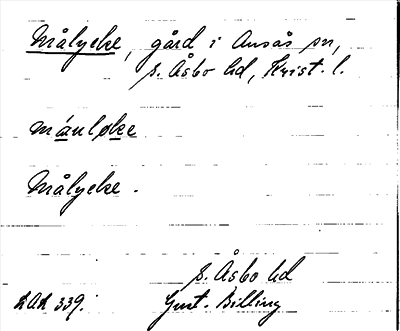 Målycke, gård i Ausås sn,
S. Åsbo hd, Krist. l.
måuløke
Målycke.
S. Åsbo hd
LAL 339. Gust. Billing